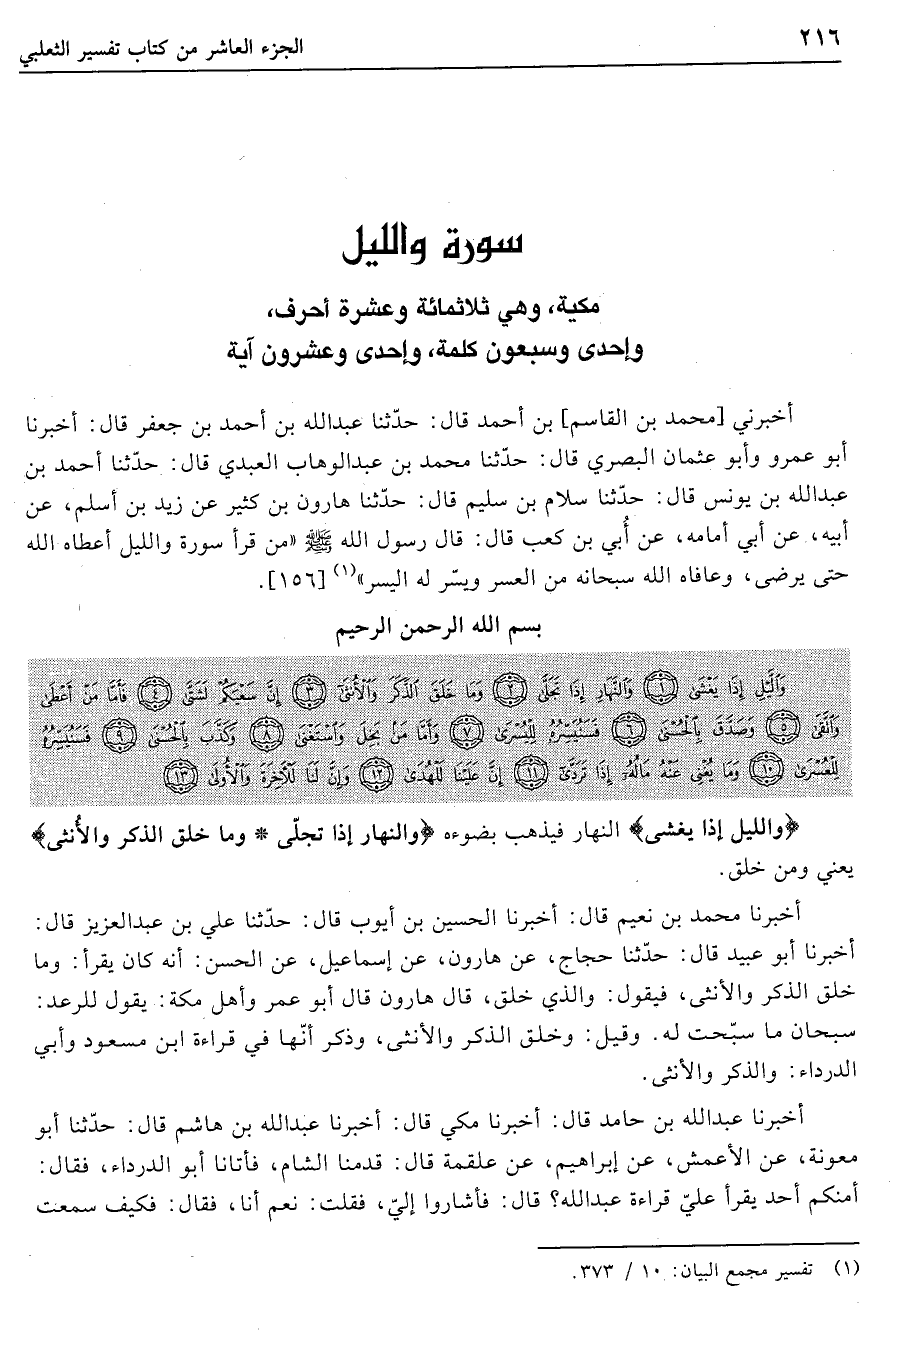 ٢١٦
الجزء العاشر من كتاب تفسير الثعلبي
سورة والليل
مكية، وهي ثلاثمائة وعشرة أحرف،
وإحدى وسبعون كلمة، وإحدى وعشرون آية
أخبرني [محمد بن القاسم] بن أحمد قال: حدّثنا عبدالله بن أحمد بن جعفر قال: أخبرنا
أبو عمرو وأبو عثمان البصري قال: حدّثنا محمد بن عبدالوهاب العبدي قال: حدّثنا أحمد بن
عبدالله بن يونس قال: حدّثنا سلام بن سليم قال: حدّثنا هارون بن كثير عن زيد بن أسلم، عن
أبيه، عن أبي أمامه، عن أُبي بن كعب قال: قال رسول الله ﷺ «من قرأ سورة والليل أعطاه الله
حتى يرضى، وعافاه الله سبحانه من العسر ويسّر له اليسر»(١) [١٥٦].
بسم الله الرحمن الرحيم
وَٱلَّيْلِ إِذَا يَغْشَىٰ ١ وَٱلنَّهَارِ إِذَا تَجَلَّىٰ ٢ وَمَا خَلَقَ ٱلذَّكَرَ وَٱلْأُنثَىٰ ٣ إِنَّ سَعْيَكُمْ لَشَتَّىٰ ٤ فَأَمَّا مَنْ أَعْطَىٰ
وَٱتَّقَىٰ ٥ وَصَدَّقَ بِٱلْحُسْنَىٰ ٦ فَسَنُيَسِّرُهُۥ لِلْيُسْرَىٰ ٧ وَأَمَّا مَنۢ بَخِلَ وَٱسْتَغْنَىٰ ٨ وَكَذَّبَ بِٱلْحُسْنَىٰ ٩ فَسَنُيَسِّرُهُۥ
لِلْعُسْرَىٰ ١٠ وَمَا يُغْنِى عَنْهُ مَالُهُۥٓ إِذَا تَرَدَّىٰٓ ١١ إِنَّ عَلَيْنَا لَلْهُدَىٰ ١٢ وَإِنَّ لَنَا لَلْءَاخِرَةَ وَٱلْأُولَىٰ ١٣
﴿والليل إذا يغشى﴾ النهار فيذهب بضوءه ﴿والنهار إذا تجلّى * وما خلق الذكر والأُنثى﴾
يعني ومن خلق.
أخبرنا محمد بن نعيم قال: أخبرنا الحسين بن أيوب قال: حدّثنا علي بن عبدالعزيز قال:
أخبرنا أبو عبيد قال: حدّثنا حجاج، عن هارون، عن إسماعيل، عن الحسن: أنه كان يقرأ: وما
خلق الذكر والأنثى، فيقول: والذي خلق، قال هارون قال أبو عمر وأهل مكة: يقول للرعد:
سبحان ما سبّحت له. وقيل: وخلق الذكر والأنثى، وذكر أنّها في قراءة ابن مسعود وأبي
الدرداء: والذكر والأنثى.
أخبرنا عبدالله بن حامد قال: أخبرنا مكي قال: أخبرنا عبدالله بن هاشم قال: حدّثنا أبو
معونة، عن الأعمش، عن إبراهيم، عن علقمة قال: قدمنا الشام، فأتانا أبو الدرداء، فقال:
أمنكم أحد يقرأ عليّ قراءة عبدالله؟ قال: فأشاروا إليّ، فقلت: نعم أنا، فقال: فكيف سمعت
(١) تفسير مجمع البيان: ١٠ / ٣٧٣.